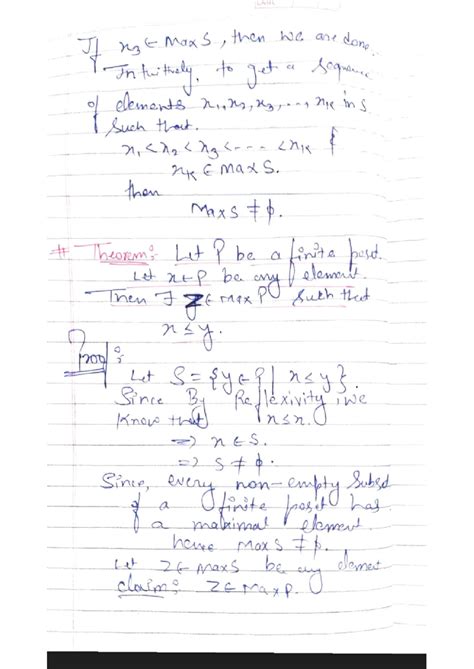 If x₃ ∈ Max S, then we are done.
Intuitively, to get a sequence
of elements x₁, x₂, x₃, ..., xₖ in S
such that.
x₁ < x₂ < x₃ < --- < xₖ &
xₖ ∈ Max S.
then
Max S ≠ ϕ.
# Theorem: Let P be a finite poset.
Let x ∈ P be any element.
Then ∃ z ∈ Max P such that
x ≤ y.
Proof:
Let S = {y ∈ P | x ≤ y}.
Since By Reflexivity, we
know that x ≤ x.
⇒ x ∈ S.
⇒ S ≠ ϕ.
Since, every non-empty subset
of a finite poset has
a maximal element.
hence Max S ≠ ϕ.
Let z ∈ Max S be any element
claim: z ∈ Max P.